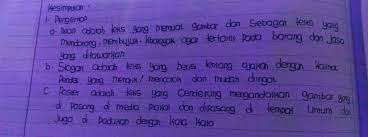 Kesimpulan :
1. Pengertian
a. Iklan adalah teks yang memuat gambar dan sebagai teks yang
mendorong, membujuk khalayak agar tertarik pada barang dan jasa
yang ditawarkan
b. Slogan adalah teks yang berisi tentang ajakan dengan kalimat
Pendek yang menarik / mencolok dan mudah diingat
c. Poster adalah teks yang cenderung mengandalkan gambar yang
di pasang di media massa dan dipasang di tempat umum dan
Juga di padukan dengan kata-kata